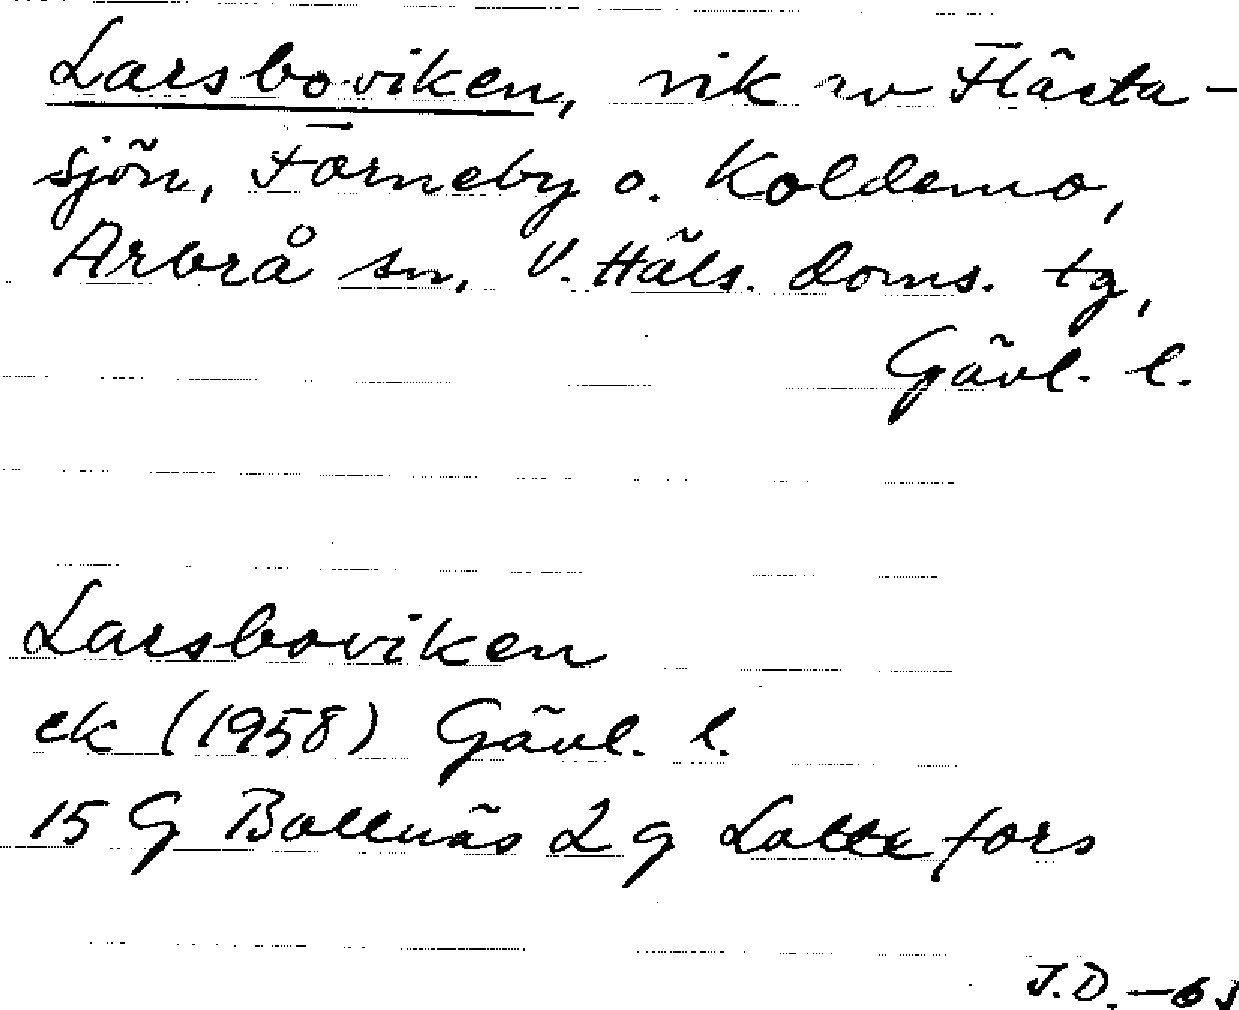 Larsboviken, vik av Flästa-
sjön, Förneby o. Koldemo,
Arbrå sn, V. Häls. doms. tg,
Gävl. l.
Larsboviken
ek (1958) Gävl. l.
15 G Bollnäs 2 g Lottefors
J.D.